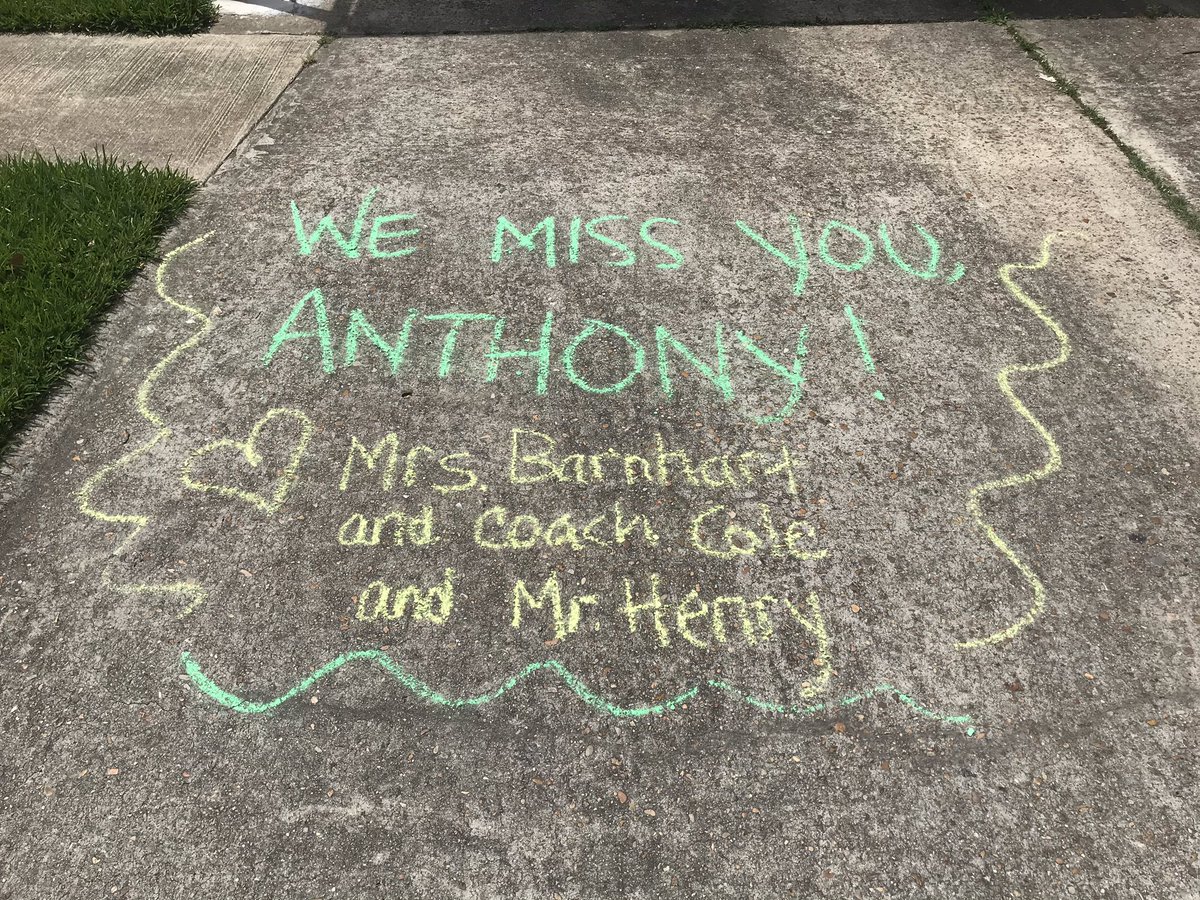 WE MISS YOU,
ANTHONY!
Mrs. Barnhart
and Coach Cole
and Mr. Henry